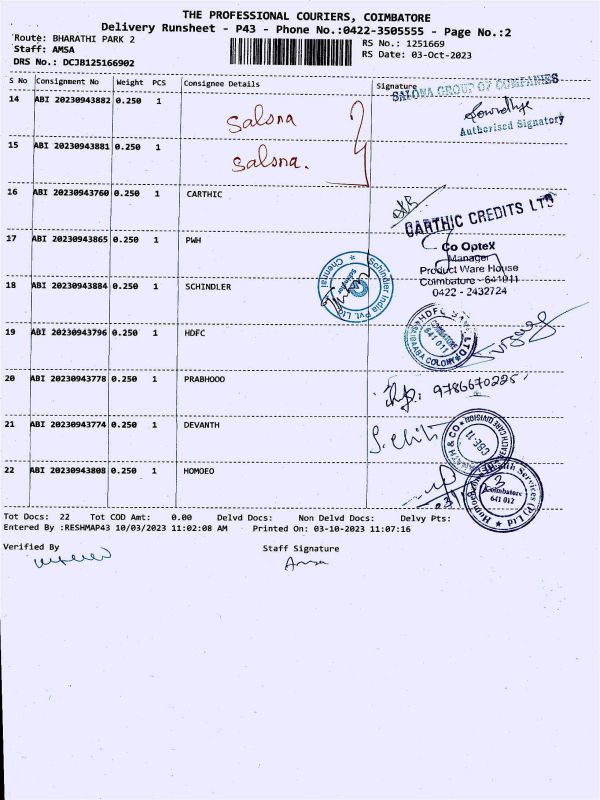 THE PROFESSIONAL COURIERS, COIMBATORE
Delivery Runsheet - P43 - Phone No.:0422-3505555 - Page No.:2
Route: BHARATHI PARK 2
RS No.: 1251669
Staff: AMSA
RS Date: 03-Oct-2023
DRS No.: DCJB125166902
S No Consignment No Weight PCS Consignee Details Signature
SALONA GROUP OF COMPANIES
14 ABI 20230943882 0.250 1 Salona
Authorised Signatory
15 ABI 20230943881 0.250 1 Salona.
16 ABI 20230943760 0.250 1 CARTHIC
CARTHIC CREDITS LTD
17 ABI 20230943865 0.250 1 PWH
Co Optex
Manager
Product Ware House
Coimbatore - 641011
0422 - 2432724
18 ABI 20230943884 0.250 1 SCHINDLER
Schindler India Pvt. Ltd.
Chennai
19 ABI 20230943796 0.250 1 HDFC
HDFC BANK LTD
COIMBATORE
641 011
SAIBAABA COLONY
20 ABI 20230943778 0.250 1 PRABHOOO
9786670225
21 ABI 20230943774 0.250 1 DEVANTH
CBE-11
22 ABI 20230943808 0.250 1 HOMOEO
Health Services (P) Ltd
Coimbatore
641 012
Tot Docs: 22 Tot COD Amt: 0.00 Delvd Docs: Non Delvd Docs: Delvy Pts:
Entered By :RESHMAP43 10/03/2023 11:02:08 AM Printed On: 03-10-2023 11:07:16
Verified By
Staff Signature
Amsa